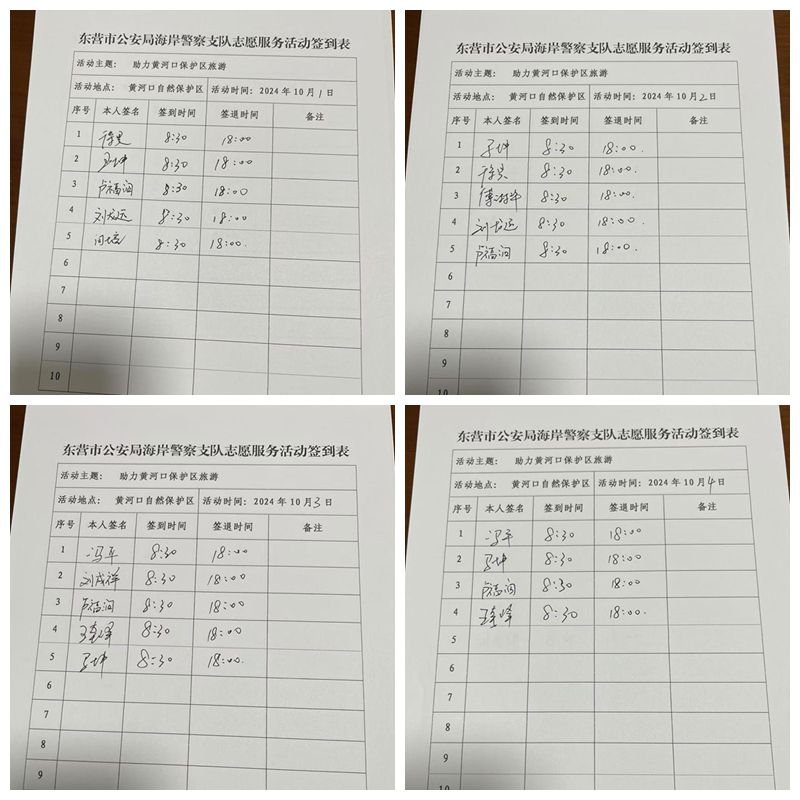 东营市公安局海岸警察支队志愿服务活动签到表
活动主题: 助力黄河口保护区旅游
活动地点: 黄河口自然保护区 活动时间: 2024 年 10 月 1 日
序号 本人签名 签到时间 签退时间 备注
1 8:30 18:00
2 8:30 18:00
3 卢福润 8:30 18:00
4 刘成远 8:30 18:00
5 8:30 18:00.
6
7
8
9
10
东营市公安局海岸警察支队志愿服务活动签到表
活动主题: 助力黄河口保护区旅游
活动地点: 黄河口自然保护区 活动时间: 2024 年 10 月 2 日
序号 本人签名 签到时间 签退时间 备注
1 8:30 18:00.
2 8:30 18:00.
3 8:30 18:00.
4 8:30 18:00.
5 卢福润 8:30 18:00.
6
7
8
9
10
东营市公安局海岸警察支队志愿服务活动签到表
活动主题: 助力黄河口保护区旅游
活动地点: 黄河口自然保护区 活动时间: 2024 年 10 月 3 日
序号 本人签名 签到时间 签退时间 备注
1 冯军 8:30 18:00
2 刘成祥 8:30 18:00
3 卢福润 8:30 18:00
4 8:30 18:00
5 8:30 18:00.
6
7
8
9
东营市公安局海岸警察支队志愿服务活动签到表
活动主题: 助力黄河口保护区旅游
活动地点: 黄河口自然保护区 活动时间: 2024 年 10 月 4 日
序号 本人签名 签到时间 签退时间 备注
1 冯军 8:30 18:00
2 8:30 18:00
3 卢福润 8:30 18:00
4 8:30 18:00.
5
6
7
8
9
10